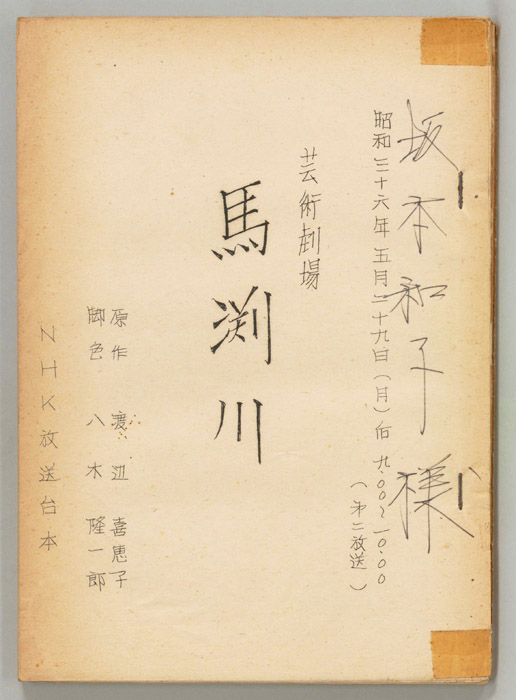 坂本和子様
昭和三十六年五月二十九日(月)后九.〇〇〜一〇.〇〇
(第二放送)
芸術劇場
馬渕川
原作 渡辺喜恵子
脚色 八木隆一郎
NHK放送台本